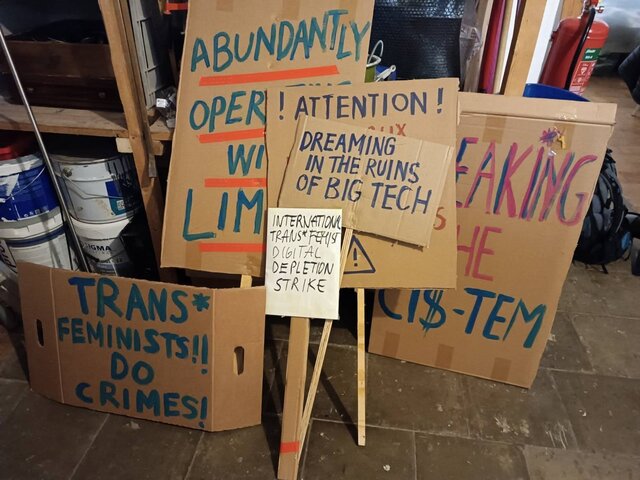 ABUNDANTLY
OPER
WI
LIM
! ATTENTION !
DREAMING
IN THE RUINS
OF BIG TECH
INTERNATIONAL
TRANS*FEMIST
DIGITAL
DEPLETION
STRIKE
EAKING
HE
CI$-TEM
TRANS*
FEMINISTS!!
DO
CRIMES!